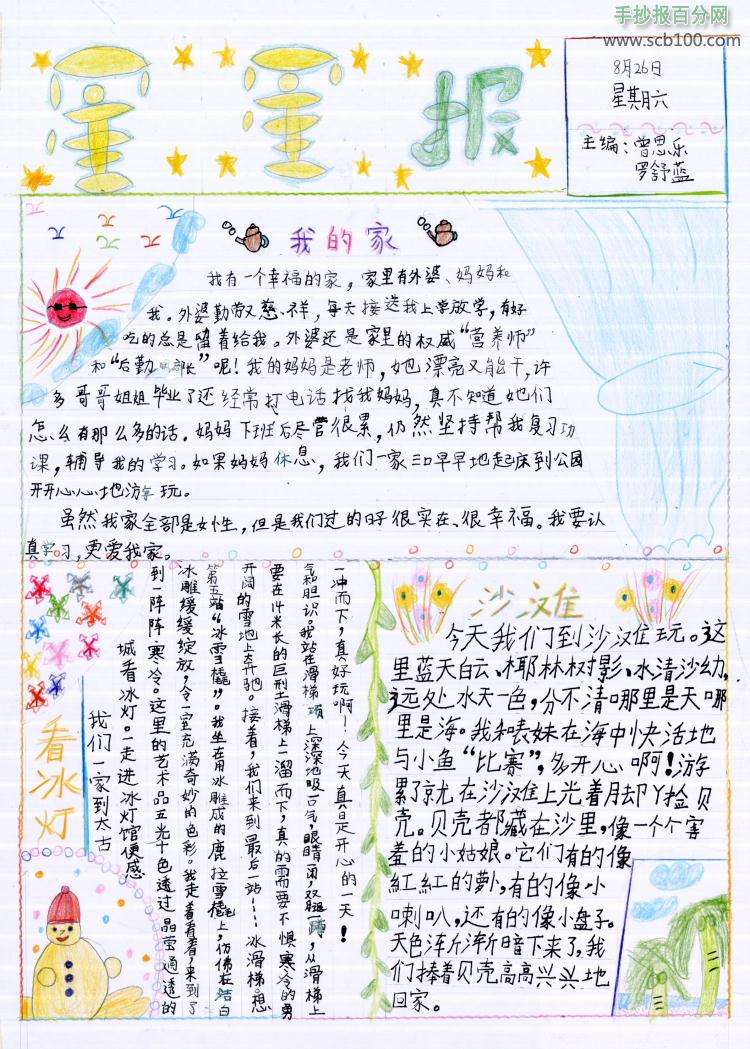 手抄报百分网
www.scb100.com
星星报
8月26日
星期六
主编：曾思乐
罗舒蓝
我的家
我有一个幸福的家，家里有外婆、妈妈和
我。外婆勤劳又慈祥，每天接送我上学放学，有好
吃的总是留着给我。外婆还是家里的权威“营养师”
和“后勤部长”呢！我的妈妈是老师，她漂亮又能干，许
多哥哥姐姐毕业了还经常打电话找我妈妈，真不知道她们
怎么有那么多的话。妈妈下班后尽管很累，仍然坚持帮我复习功
课，辅导我的学习。如果妈妈休息，我们一家三口早早地起床到公园
开开心心地游玩。
虽然我家全部是女性，但是我们过的日子很实在、很幸福。我要认
真学习，更爱我家。
看冰灯
我们一家到太古
城看冰灯。一走进冰灯馆便感
到一阵阵寒冷。这里的艺术品五光十色透过晶莹通透的
冰雕缓缓绽放，令一室充满奇妙的色彩。我走着看着，来到了
第五站“冰雪橇”。我坐在用冰雕成的鹿拉雪橇上，仿佛在洁白
开阔的雪地上奔驰。接着，我们来到最后一站……冰滑梯。想
要在14米长的巨型滑梯上一溜而下，真的需要不惧寒冷的勇
气和胆识。我站在滑梯顶上深深地吸一口气，眼睛一闭，双腿一蹲，从滑梯上
一冲而下，真好玩啊！今天真是开心的一天！
沙滩
今天我们到沙滩玩。这
里蓝天白云、椰林树影、水清沙幼，
远处水天一色，分不清哪里是天哪
里是海。我和表妹在海中快活地
与小鱼“比赛”，多开心啊！游
累了就在沙滩上光着脚丫捡贝
壳。贝壳都藏在沙里，像一个个害
羞的小姑娘。它们有的像
红红的萝卜，有的像小
喇叭，还有的像小盘子。
天色渐渐暗下来了，我
们捧着贝壳高高兴兴地
回家。